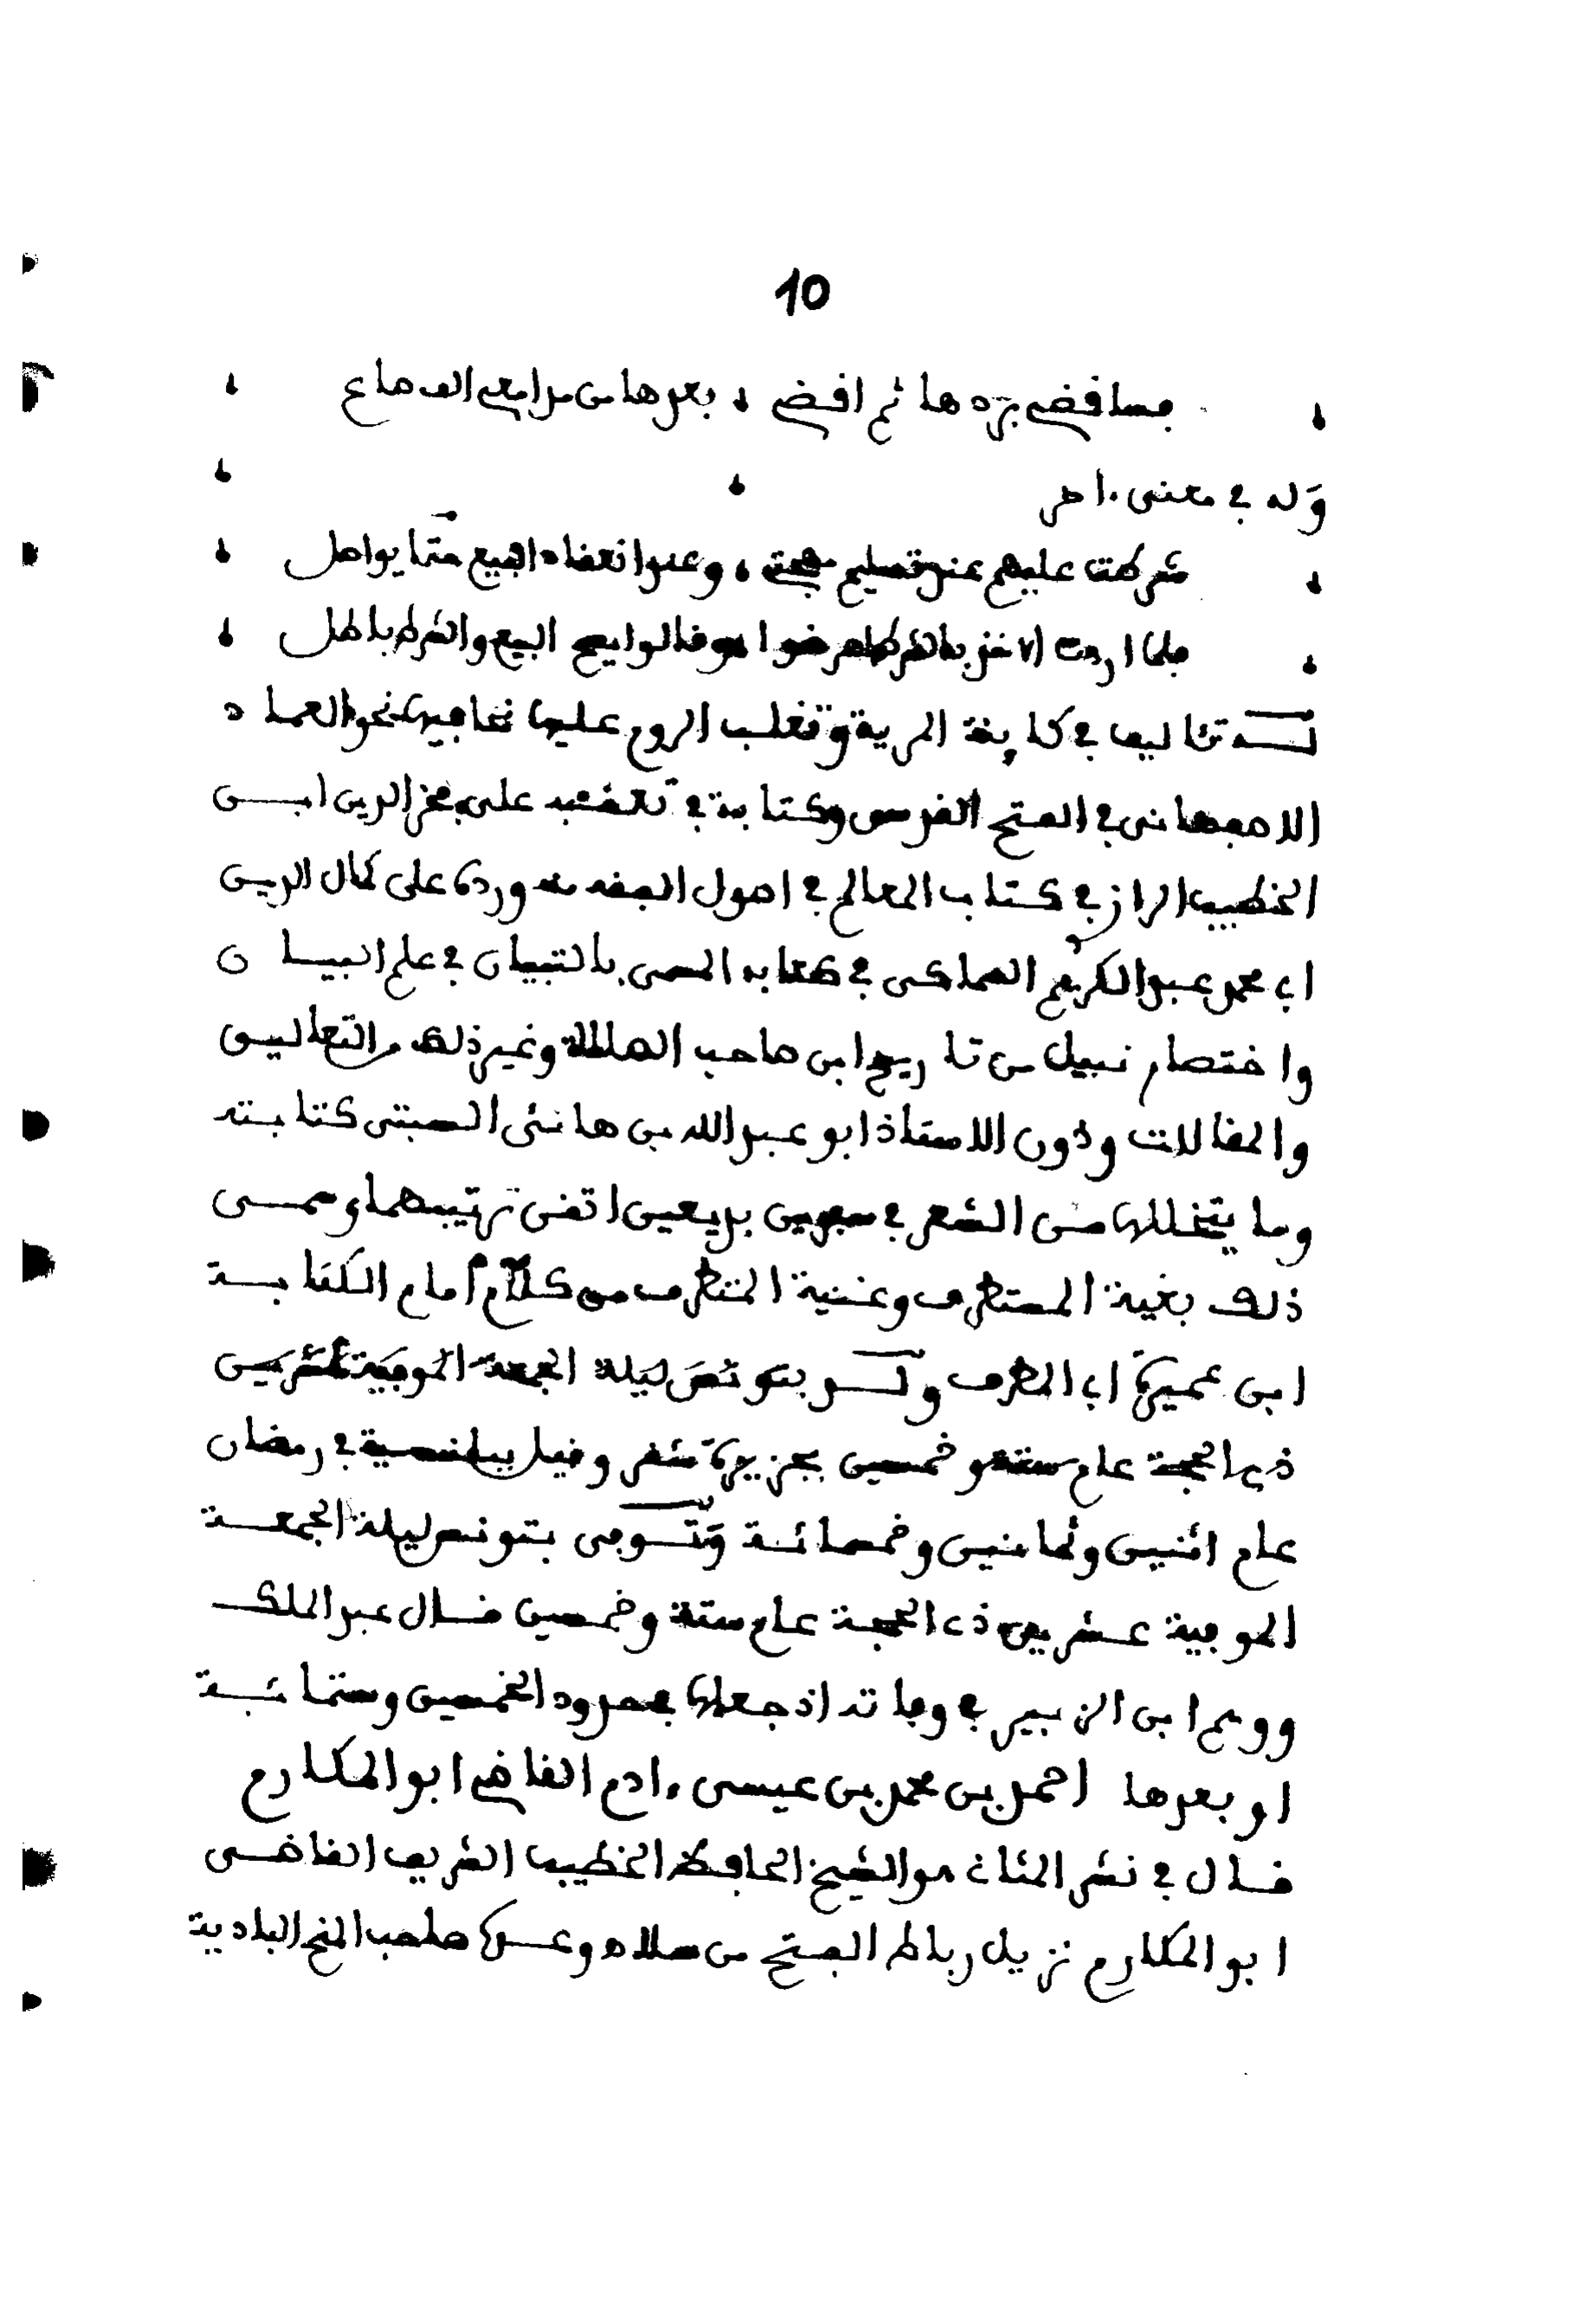 10
فسأقضي بردها ثم أقضي بعدها من مدامعي ألف صاع
وله في معنى ءاخر
شرطت عليهم عند تسليم مهجتي وعند انعقاد البيع حتما يواصل
فلما أردت الأخذ بالشرط اعرضوا وقالوا يصح البيع والشرط باطل
له تئاليف في كاينة المرية وتغلب الروم عليها نحا فيها نحو العماد
الاصفهاني في الفتح القدسي وكتابة في تعقبه على فخر الدين ابن
الخطيب الرازي في كتاب المعالم في اصول الفقه منه ورده على كمال الدين
ابي محمد عبد الكريم السماكي في كتابه المسمى بالتبيان في علم البيان
واختصار نبيل من تاريخ ابن صاحب الصلاة وغير ذلك من التعاليق
والمقالات ودون الاستاذ ابو عبد الله بن هانئي السبتي كتابته
وما يتخللها من الشعر في سفرين بديعين اتقن ترتيبهما وسمى
ذلك بغية المستطرف وغنية المتطرف من كلام امام الكتابة
ابن عميرة ابي المطرف ولد بتونس ليلة الجمعة الموفية عشرين
ذي الحجة عام ستة وخمسين بجزيرة شقر وقيل ببلنسية في رمضان
عام اثنين وثمانين وخمسمائة وتوفى بتونس ليلة الجمعة
الموفية عشرين ذي الحجة عام ستة وخمسين قال عبد الملك
ووهم ابن الزبير في وفاته اذ جعلها في حدود الخمسين وستمائة
او بعدها احمد بن محمد بن عيسى ءادم القاضي ابو المكارم
قال في نشر المثاني هو الشيخ الحافظ الخطيب الشريف القاضى
ابو المكارم نزيل رباط الفتح من سلا وعدة صاحب المنح البادية